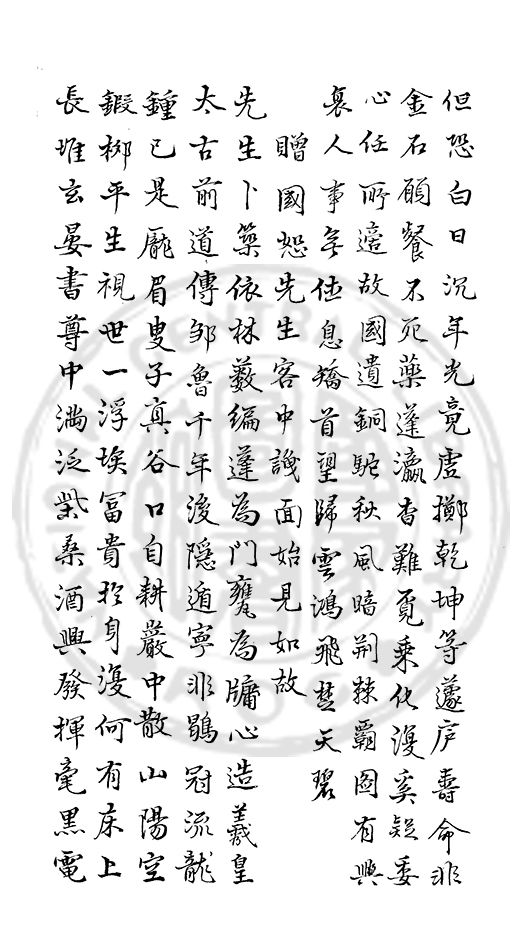 但恐白日沉年光竟虛擲乾坤等蘧廬壽命非
金石願餐不死藥蓬瀛杳難覓乘化復奚疑委
心任所適故國遺銅駝秋風暗荆棘霸圖有興
衰人事無休息矯首望歸雲鴻飛楚天碧
贈國恕先生客中識面始見如故
先生卜築依林藪編蓬為門甕為牖心造羲皇
太古前道傳鄒魯千年後隱遁寧非鶡冠流龍
鍾已是厖眉叟子真谷口自耕巖中散山陽空
鍜柳平生視世一浮埃冨貴於身復何有床上
長堆玄晏書尊中滿泛柴桑酒興發揮毫黑電